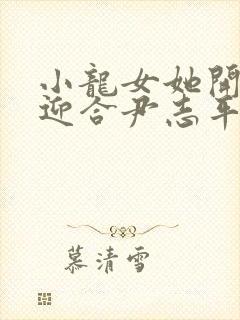 小龍女她開
迎合尹志平
慕清雪